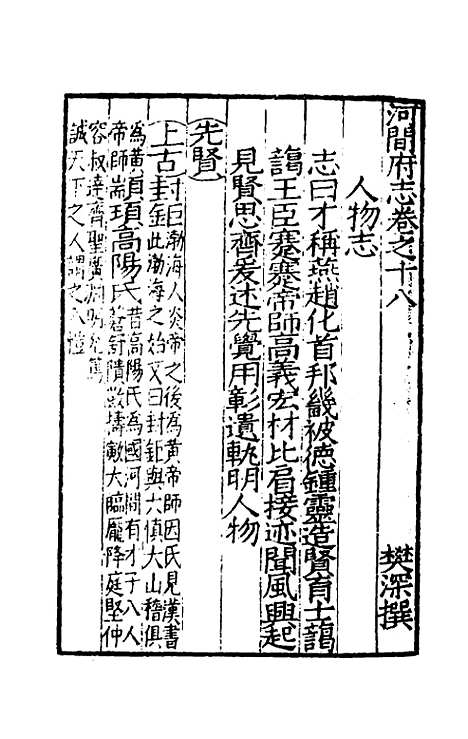 河間府志卷之十八
樊深撰
人物志
志曰才稱燕趙化首邦畿被德鍾靈造賢育士藹
藹王臣蹇蹇帝師高義宏材比肩接迹聞風興起
見賢思齊爰述先覺用彰遺軌明人物
先賢
上古
封鉅渤海人炎帝之後為黃帝師因氏見漢書
此渤海之始文曰封鉅與六慎大山稽俱
為黃
帝師
顓頊高陽氏
昔高陽氏為國河間有才子八人
蒼舒隤敳檮戭大臨龐降庭堅仲
容叔達齊聖廣淵明允篤
誠天下之人謂之八愷